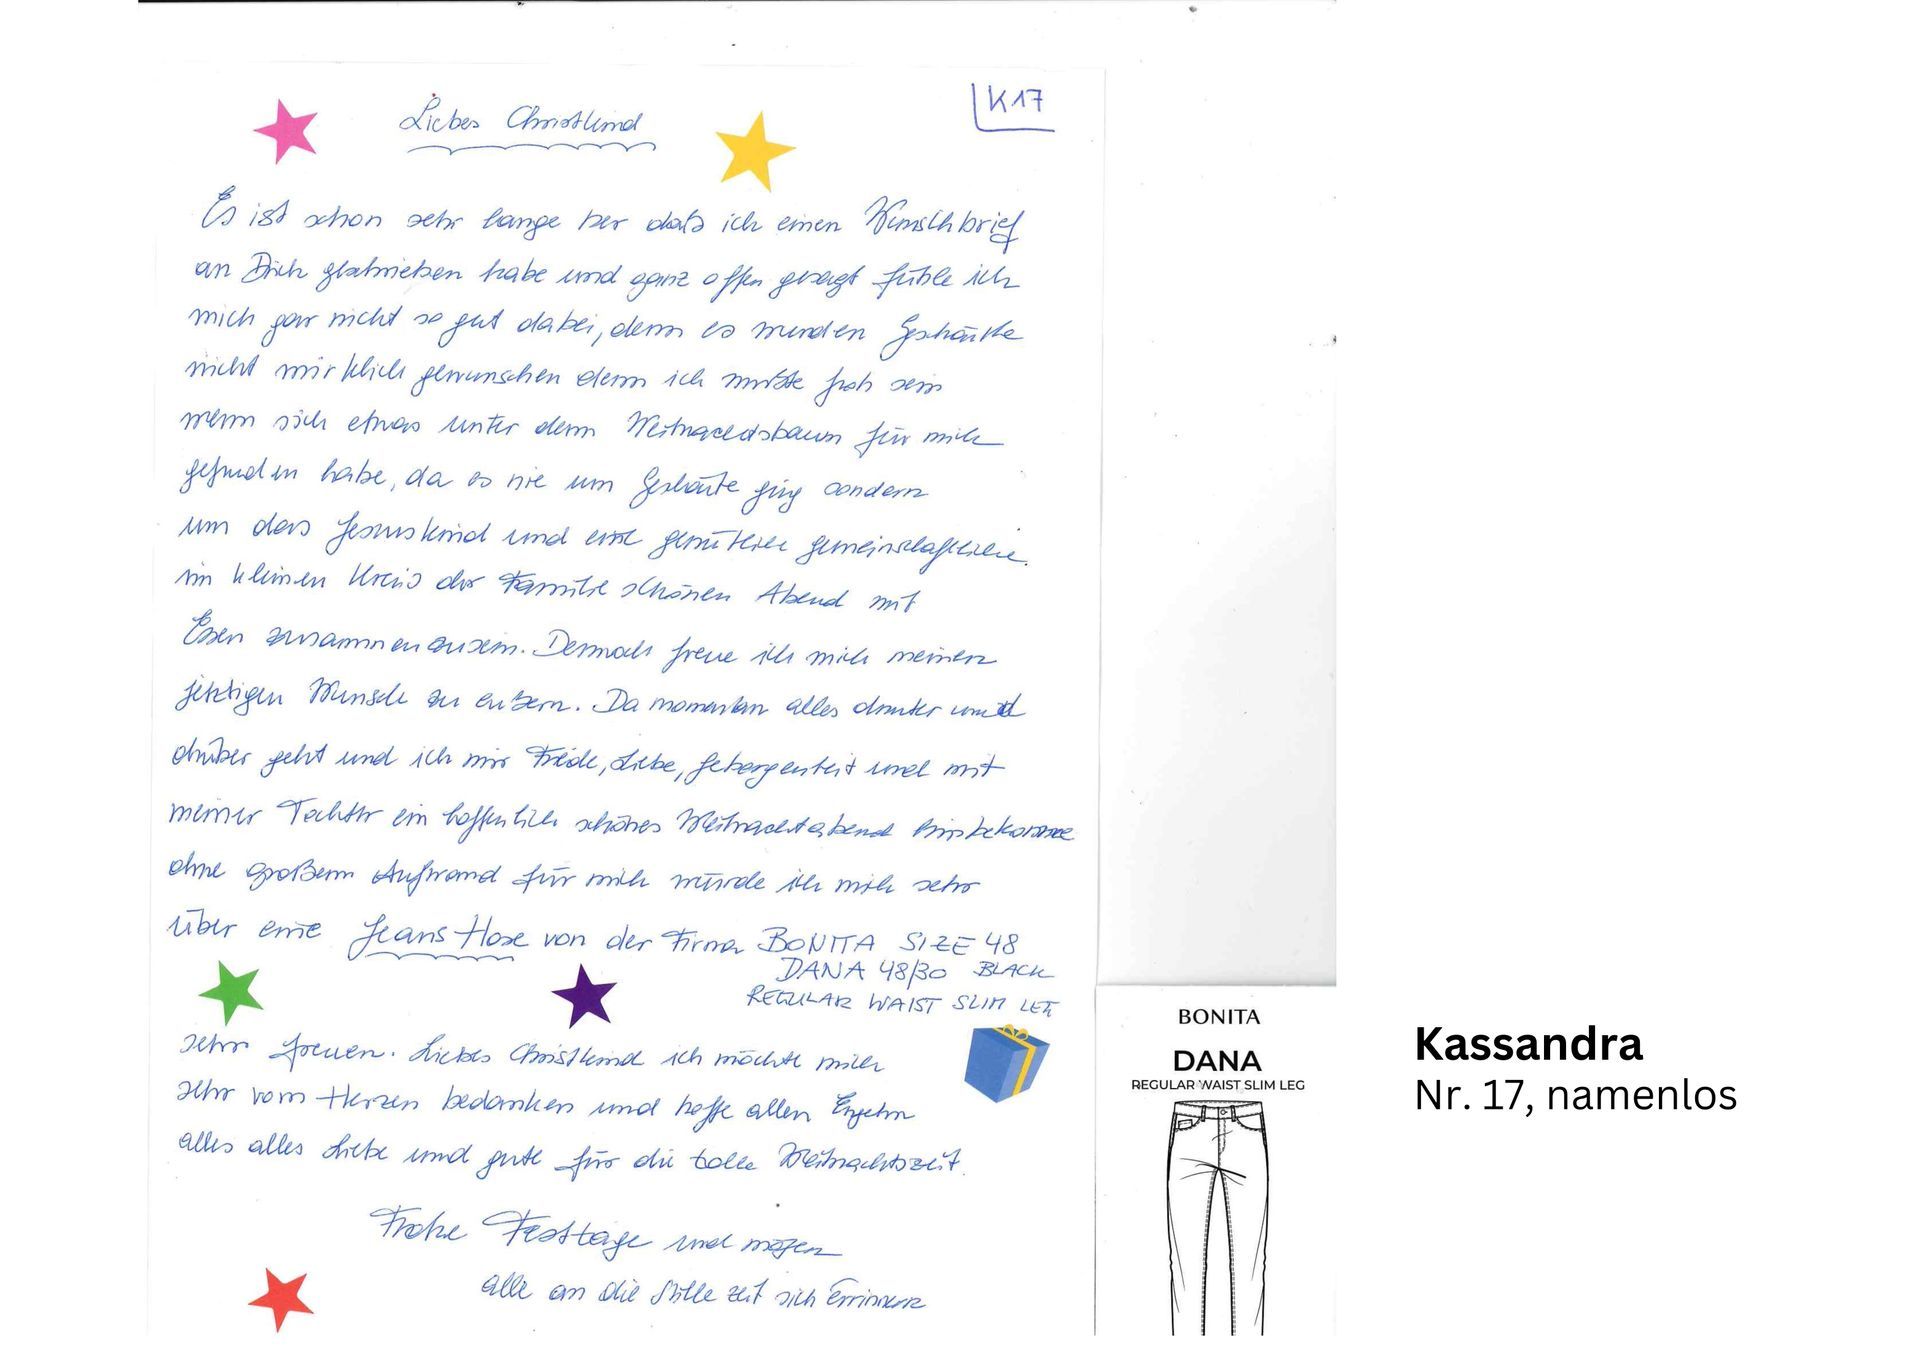 K17
Liebes Christkind
Es ist schon sehr lange her daß ich einen Wunschbrief
an Dich geschrieben habe und ganz offen gesagt fühle ich
mich gar nicht so gut dabei, denn es wurden Geschänke
nicht wirklich gewunschen denn ich mußte froh sein
wenn sich etwas unter denn Weihnachdsbaum für mich
gefunden habe, da es nie um Geshänke ging sondern
um das Jesuskind und eine gemütliche gemeinschaftliche
im kleinen Kreis der Familie schönen Abend mit
Essen zusammenzusein. Dennoch freue ich mich meinen
jetztigen Wunsch zu eußern. Da momentan alles drunter und
drüber geht und ich mir Friede, Liebe, Geborgenheit und mit
meiner Tochter ein hoffentlich schönes Weihnachtabend hinbekomme
ohne großem Aufwand für mich würde ich mich sehr
über eine Jeans Hose von der Firma BONITA SIZE 48
DANA 48/30 BLACK
REGULAR WAIST SLIM LEG
sehr freuen. Liebes Christkind ich möchte mich
sehr vom Herzen bedanken und hoffe allen Engeln
alles alles Liebe und gute für die tolle Weihnachtszeit.
Frohe Festtage und mögen
alle an die Stille zeit sich Errinnern
BONITA
DANA
REGULAR WAIST SLIM LEG
Kassandra
Nr. 17, namenlos